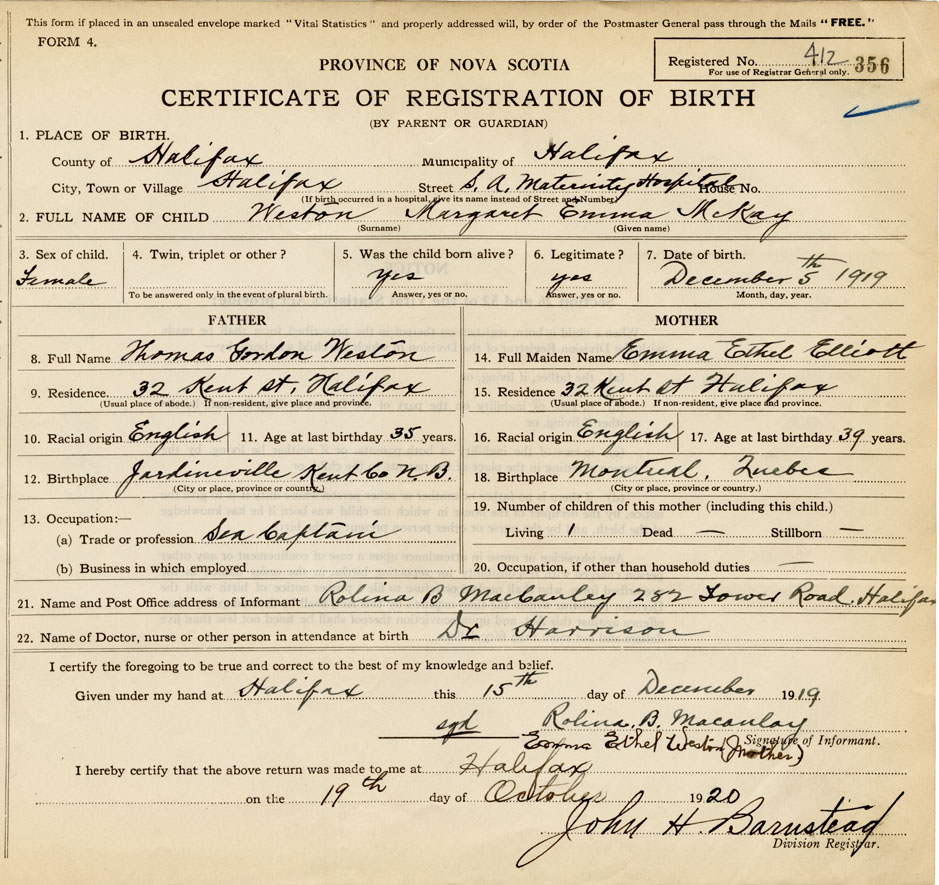 This form if placed in an unsealed envelope marked "Vital Statistics" and properly addressed will, by order of the Postmaster General pass through the Mails "FREE."
FORM 4.
Registered No. 412 356
For use of Registrar General only.
PROVINCE OF NOVA SCOTIA
CERTIFICATE OF REGISTRATION OF BIRTH
(BY PARENT OR GUARDIAN)
1. PLACE OF BIRTH.
County of Halifax Municipality of Halifax
City, Town or Village Halifax Street S. A. Maternity Hospital House No.
(If birth occurred in a hospital, give its name instead of Street and Number)
2. FULL NAME OF CHILD Weston Margaret Emma McKay
(Surname) (Given name)
3. Sex of child. 4. Twin, triplet or other? 5. Was the child born alive? 6. Legitimate? 7. Date of birth.
Female yes yes December 5th 1919
To be answered only in the event of plural birth. Answer, yes or no. Answer, yes or no. Month, day, year.
FATHER MOTHER
8. Full Name Thomas Gordon Weston 14. Full Maiden Name Emma Ethel Elliott
9. Residence. 32 Kent St, Halifax 15. Residence 32 Kent St Halifax
(Usual place of abode.) If non-resident, give place and province. (Usual place of abode.) If non-resident, give place and province.
10. Racial origin English 11. Age at last birthday 35 years. 16. Racial origin English 17. Age at last birthday 39 years.
12. Birthplace Jardineville Kent Co N.B. 18. Birthplace Montreal, Quebec
(City or place, province or country.) (City or place, province or country.)
13. Occupation:— 19. Number of children of this mother (including this child.)
(a) Trade or profession Sea Captain Living 1 Dead — Stillborn —
(b) Business in which employed 20. Occupation, if other than household duties —
21. Name and Post Office address of Informant Rolina B MacCauley 282 Tower Road, Halifax
22. Name of Doctor, nurse or other person in attendance at birth Dr Harrison
I certify the foregoing to be true and correct to the best of my knowledge and belief.
Given under my hand at Halifax this 15th day of December 1919
sgd Rolina, B. Macaulay
Signature of Informant.
Emma Ethel Weston (Mother)
I hereby certify that the above return was made to me at Halifax
on the 19th day of October 1920
John H. Barnstead
Division Registrar.